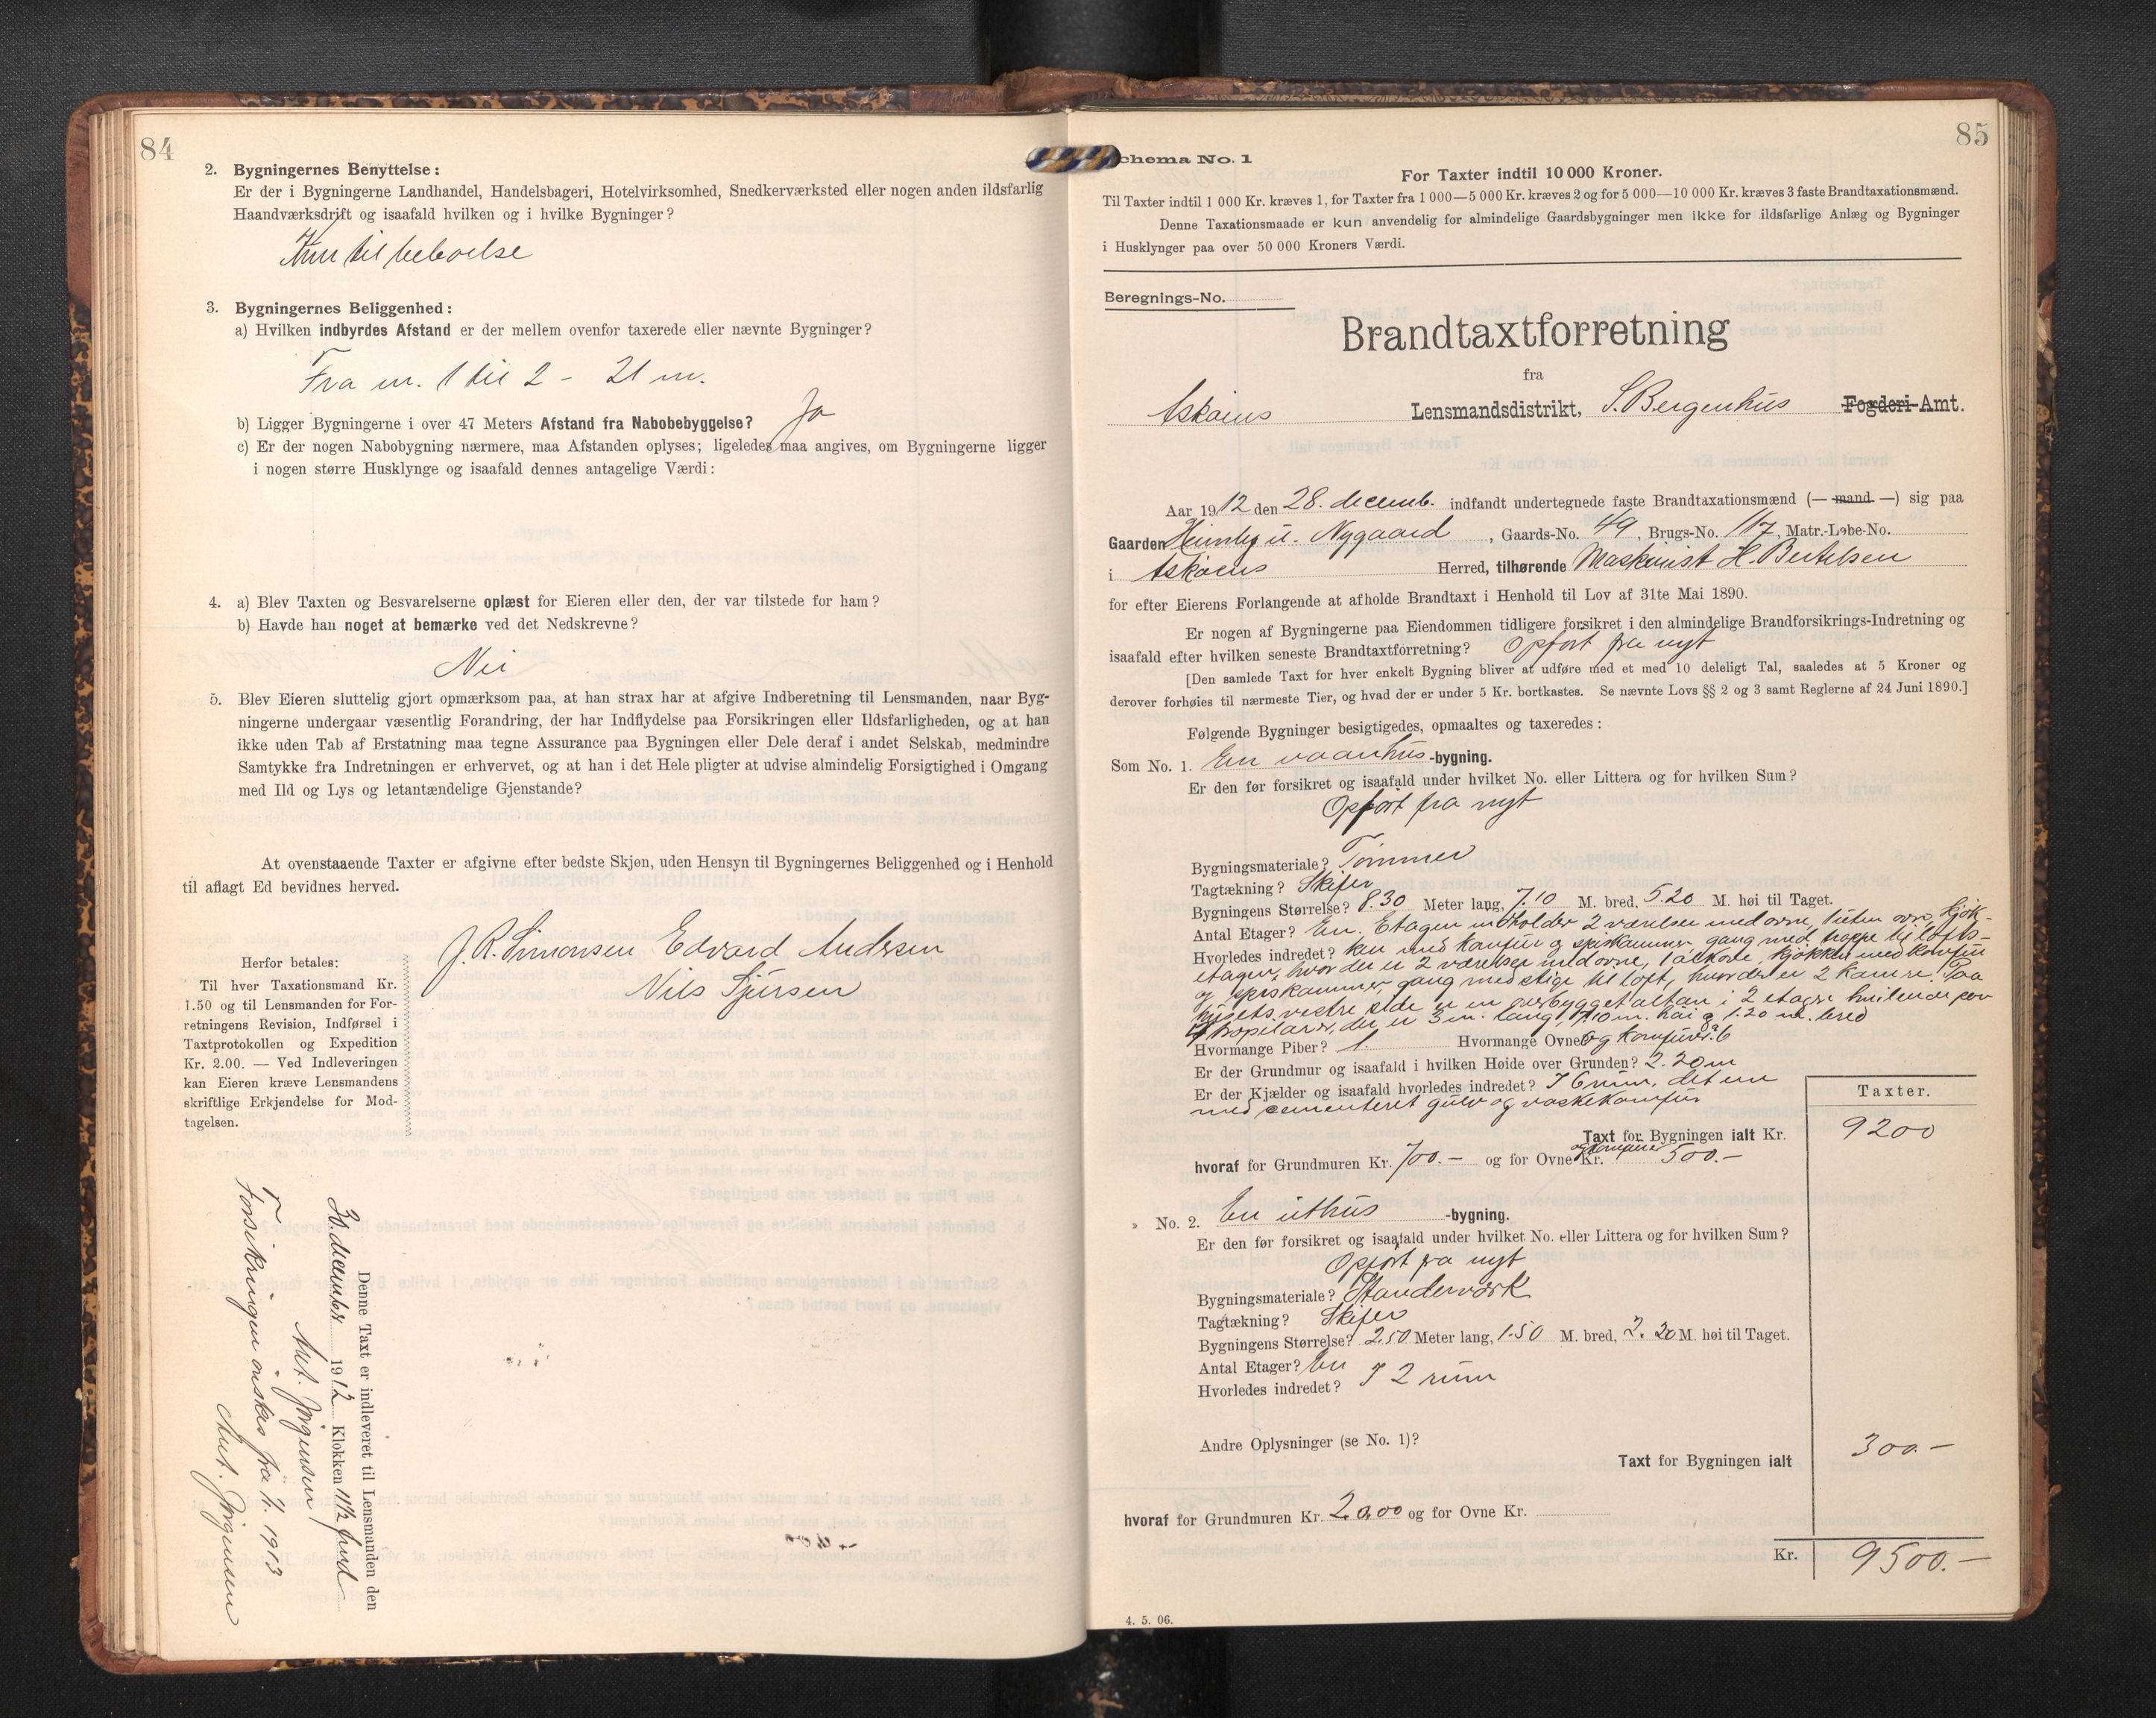 84
2. Bygningernes Benyttelse:
Er der i Bygningerne Landhandel, Handelsbageri, Hotelvirksomhed, Snedkerværksted eller nogen anden ildsfarlig
Haandværksdrift og isaafald hvilken og i hvilke Bygninger?
Kun til beboelse
3. Bygningernes Beliggenhed:
a) Hvilken indbyrdes Afstand er der mellem ovenfor taxerede eller nævnte Bygninger?
Fra nr. 1 til 2 - 21 m.
b) Ligger Bygningerne i over 47 Meters Afstand fra Nabobebyggelse? Ja
c) Er der nogen Nabobygning nærmere, maa Afstanden oplyses; ligeledes maa angives, om Bygningerne ligger
i nogen større Husklynge og isaafald dennes antagelige Værdi:
4. a) Blev Taxten og Besvarelserne oplæst for Eieren eller den, der var tilstede for ham?
b) Havde han noget at bemærke ved det Nedskrevne?
Nei
5. Blev Eieren sluttelig gjort opmærksom paa, at han strax har at afgive Indberetning til Lensmanden, naar Byg-
ningerne undergaar væsentlig Forandring, der har Indflydelse paa Forsikringen eller Ildsfarligheden, og at han
ikke uden Tab af Erstatning maa tegne Assurance paa Bygningen eller Dele deraf i andet Selskab, medmindre
Samtykke fra Indretningen er erhvervet, og at han i det Hele pligter at udvise almindelig Forsigtighed i Omgang
med Ild og Lys og letantændelige Gjenstande?
At ovenstaaende Taxter er afgivne efter bedste Skjøn, uden Hensyn til Bygningernes Beliggenhed og i Henhold
til aflagt Ed bevidnes herved.
J. R. Simonsen Edvard Andersen
Nils Sjursen
Herfor betales:
Til hver Taxationsmand Kr.
1.50 og til Lensmanden for For-
retningens Revision, Indførsel i
Taxtprotokollen og Expedition
Kr. 2.00. — Ved Indleveringen
kan Eieren kræve Lensmandens
skriftlige Erkjendelse for Mod-
tagelsen.
Denne Taxt er indleveret til Lensmanden den
30. december 1912 Klokken 11½ fmd
Aut. Jørgensen
Forsikringen ønskes fra 1/1. 1913
Aut. Jørgensen
85
chema No. 1
For Taxter indtil 10 000 Kroner.
Til Taxter indtil 1 000 Kr. kræves 1, for Taxter fra 1 000—5 000 Kr. kræves 2 og for 5 000—10 000 Kr. kræves 3 faste Brandtaxationsmænd.
Denne Taxationsmaade er kun anvendelig for almindelige Gaardsbygninger men ikke for ildsfarlige Anlæg og Bygninger
i Husklynger paa over 50 000 Kroners Værdi.
Beregnings-No.
Brandtaxtforretning
fra
Askøens Lensmandsdistrikt, S. Bergenhus Fogderi-Amt.
Aar 1912 den 28. decemb. indfandt undertegnede faste Brandtaxationsmænd (— mand —) sig paa
Gaarden Heimly u. Nygaard, Gaards-No. 49, Brugs-No. 117, Matr.-Løbe-No.
i Askøens Herred, tilhørende Maskinist H. Bertelsen
for efter Eierens Forlangende at afholde Brandtaxt i Henhold til Lov af 31te Mai 1890.
Er nogen af Bygningerne paa Eiendommen tidligere forsikret i den almindelige Brandforsikrings-Indretning og
isaafald efter hvilken seneste Brandtaxtforretning? Opført fra nyt
[Den samlede Taxt for hver enkelt Bygning bliver at udføre med et med 10 deleligt Tal, saaledes at 5 Kroner og
derover forhøies til nærmeste Tier, og hvad der er under 5 Kr. bortkastes. Se nævnte Lovs §§ 2 og 3 samt Reglerne af 24 Juni 1890.]
Følgende Bygninger besigtigedes, opmaaltes og taxeredes:
Som No. 1. En vaanhus-bygning.
Er den før forsikret og isaafald under hvilket No. eller Littera og for hvilken Sum?
Opført fra nyt
Bygningsmateriale? Tømmer
Tagtækning? Skifer
Bygningens Størrelse? 8.30 Meter lang, 7.10 M. bred, 5.20 M. høi til Taget.
Antal Etager? En. Etagen indholder 2 værelser med ovne, 1 uten ovn, kjøk-
Hvorledes indredet? ken med komfur og spiskammer, gang med trappe til lofts-
etagen, hvor der er 2 værelser med ovne, 1 alkove, kjøkken med komfur
og spiskammer, gang med stige til loft, hvor der er 2 kamre. Paa
husets vestre side er en overbygget altan i 2 etager hvilende paa
4 træpelarer, der er 3 m. lang, 4.10 m. høi og 1.20 m. bred
Hvormange Piber? 1. Hvormange Ovne? og komfurer? 6
Er der Grundmur og isaafald i hvilken Høide over Grunden? 2.20 m
Er der Kjælder og isaafald hvorledes indredet? I 6 rum, det ene
med cementeret gulv og vaskekomfur
Taxter.
Taxt for Bygningen ialt Kr. 9200
hvoraf for Grundmuren Kr. 700.- og for Ovne og komfurer Kr. 500.-
» No. 2. En uthus-bygning.
Er den før forsikret og isaafald under hvilket No. eller Littera og for hvilken Sum?
Opført fra nyt
Bygningsmateriale? Standerværk
Tagtækning? Skifer
Bygningens Størrelse? 2.50 Meter lang, 1.50 M. bred, 2.20 M. høi til Taget.
Antal Etager? En
Hvorledes indredet? I 2 rum
Andre Oplysninger (se No. 1)?
Taxt for Bygningen ialt 300.-
hvoraf for Grundmuren Kr. 20.00 og for Ovne Kr.
Kr. 9500.-
4. 5. 06.